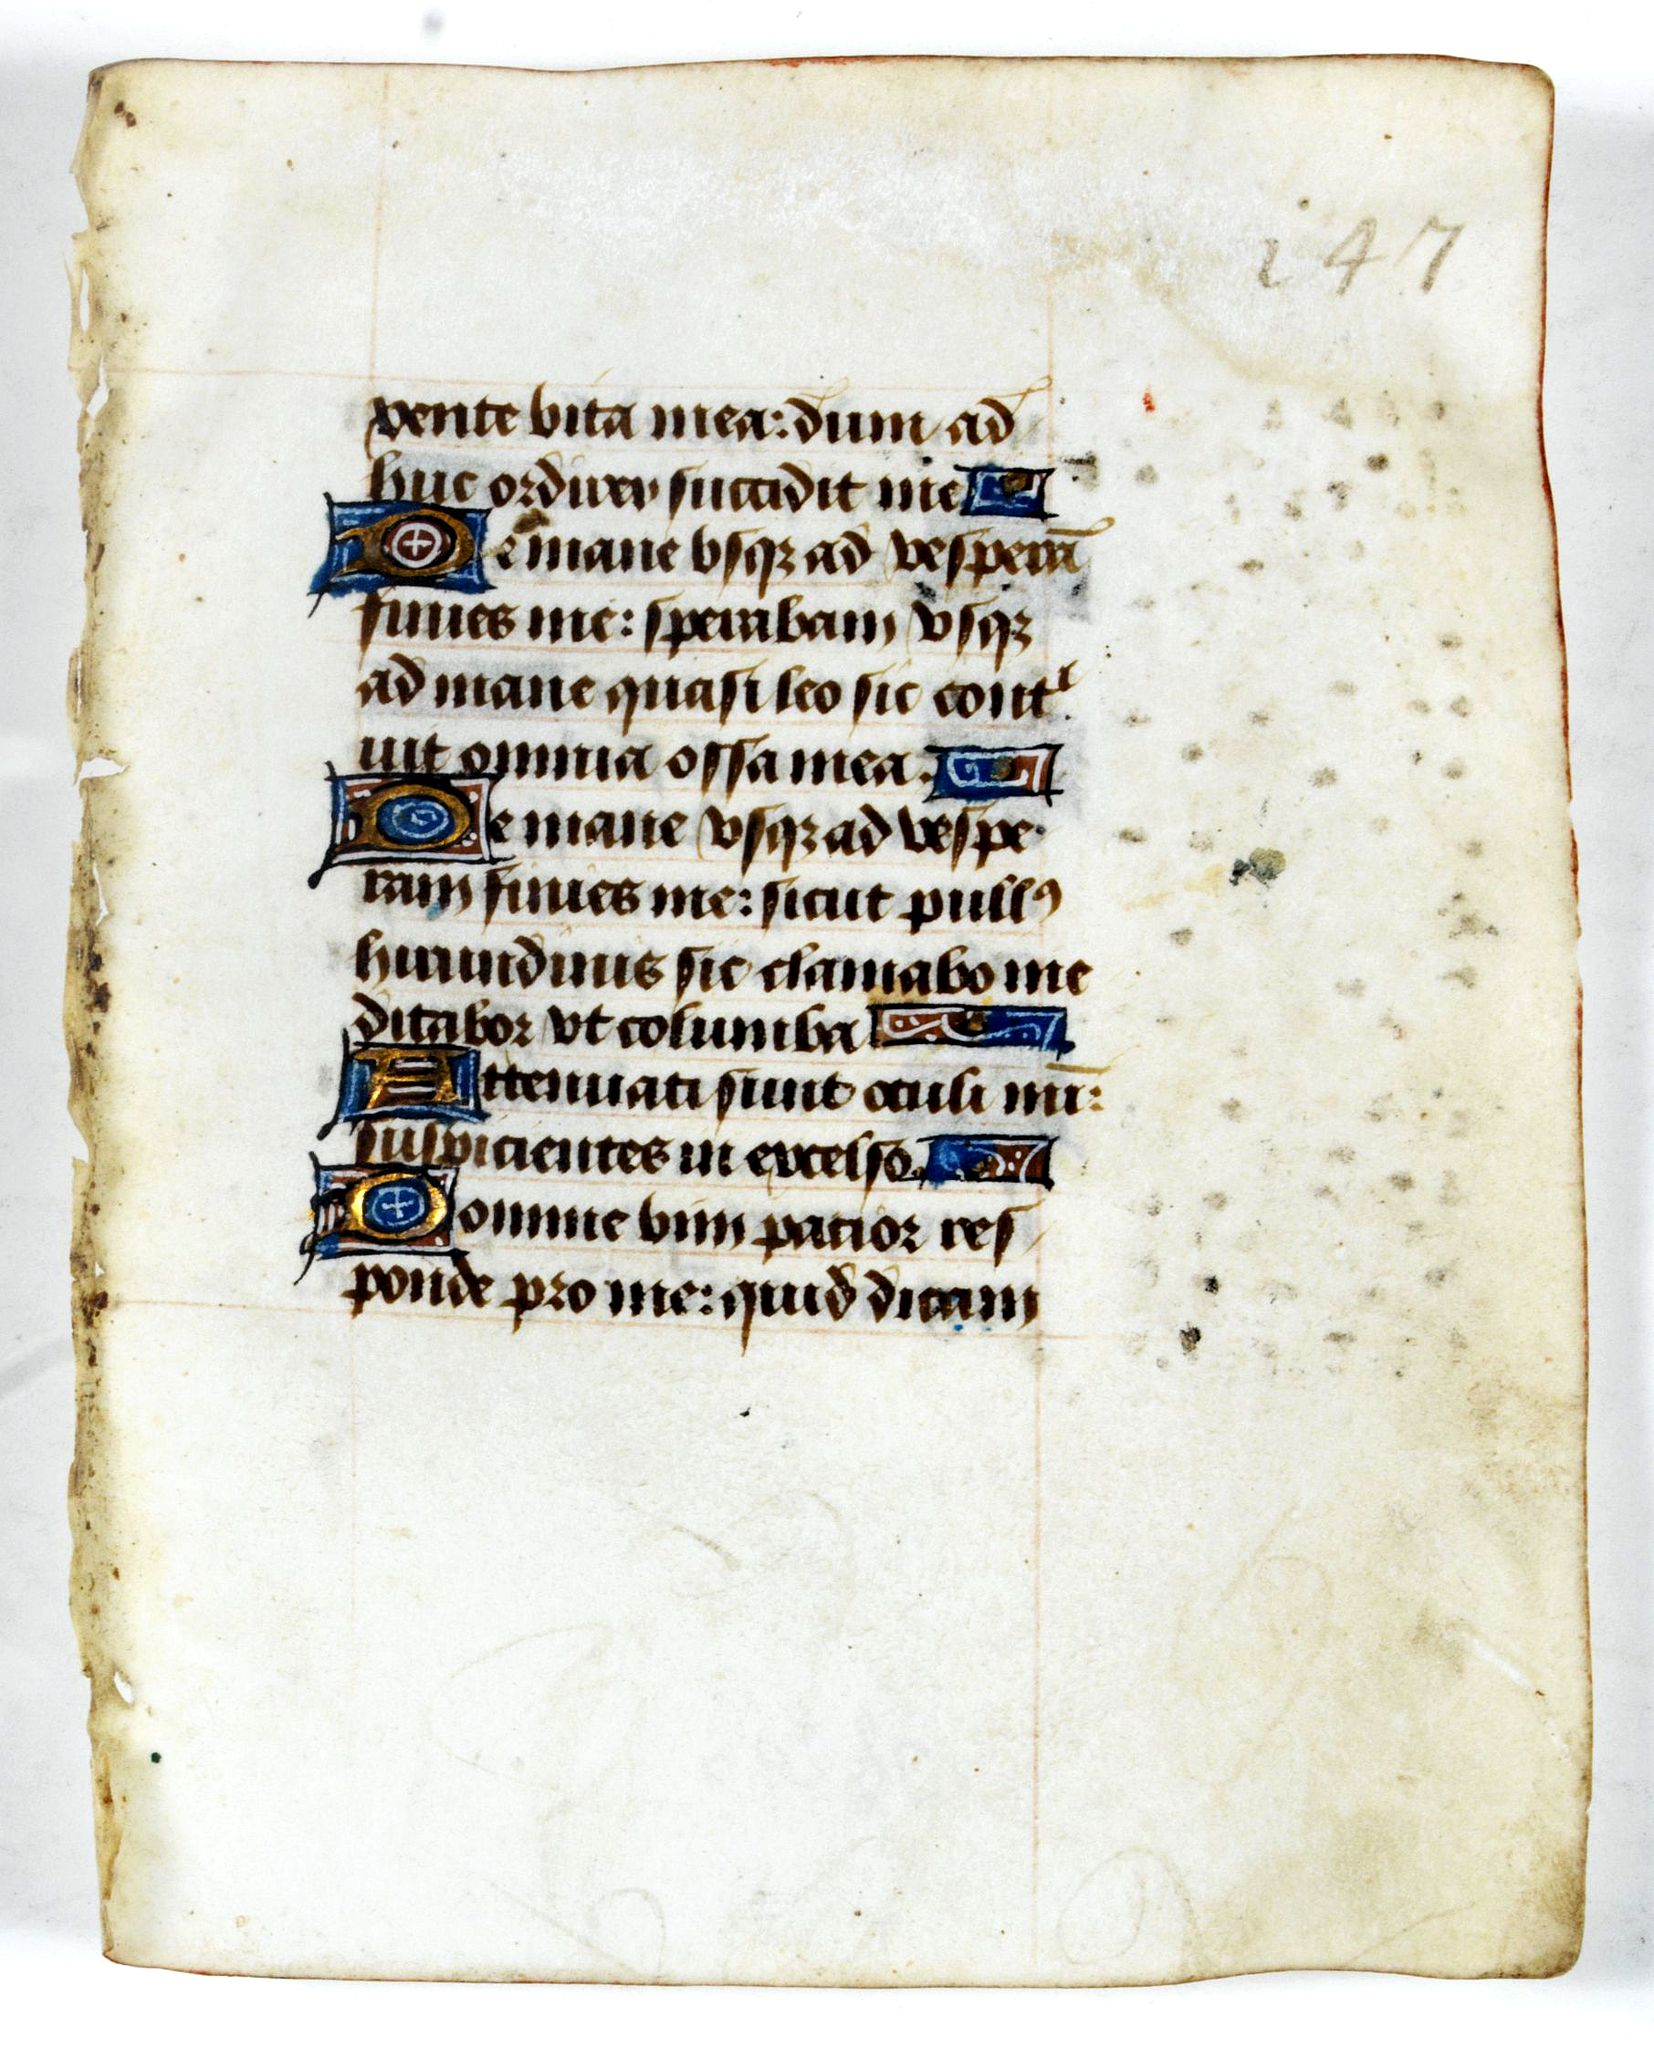 i47
vente vita mea: dum ad
huc ordirer succidit me
De mane vsqꝫ ad vesperā
finies me: sperabam vsqꝫ
ad mane quasi leo sic contͥ
uit omnia ossa mea.
De mane vsqꝫ ad vespe
ram finies me: sicut pullꝰ
hirundinis sic clamabo me
ditabor vt columba
Attenuati sunt oculi mī:
suspicientes in excelso.
Domine vim patior res
ponde pro me: quid dicam